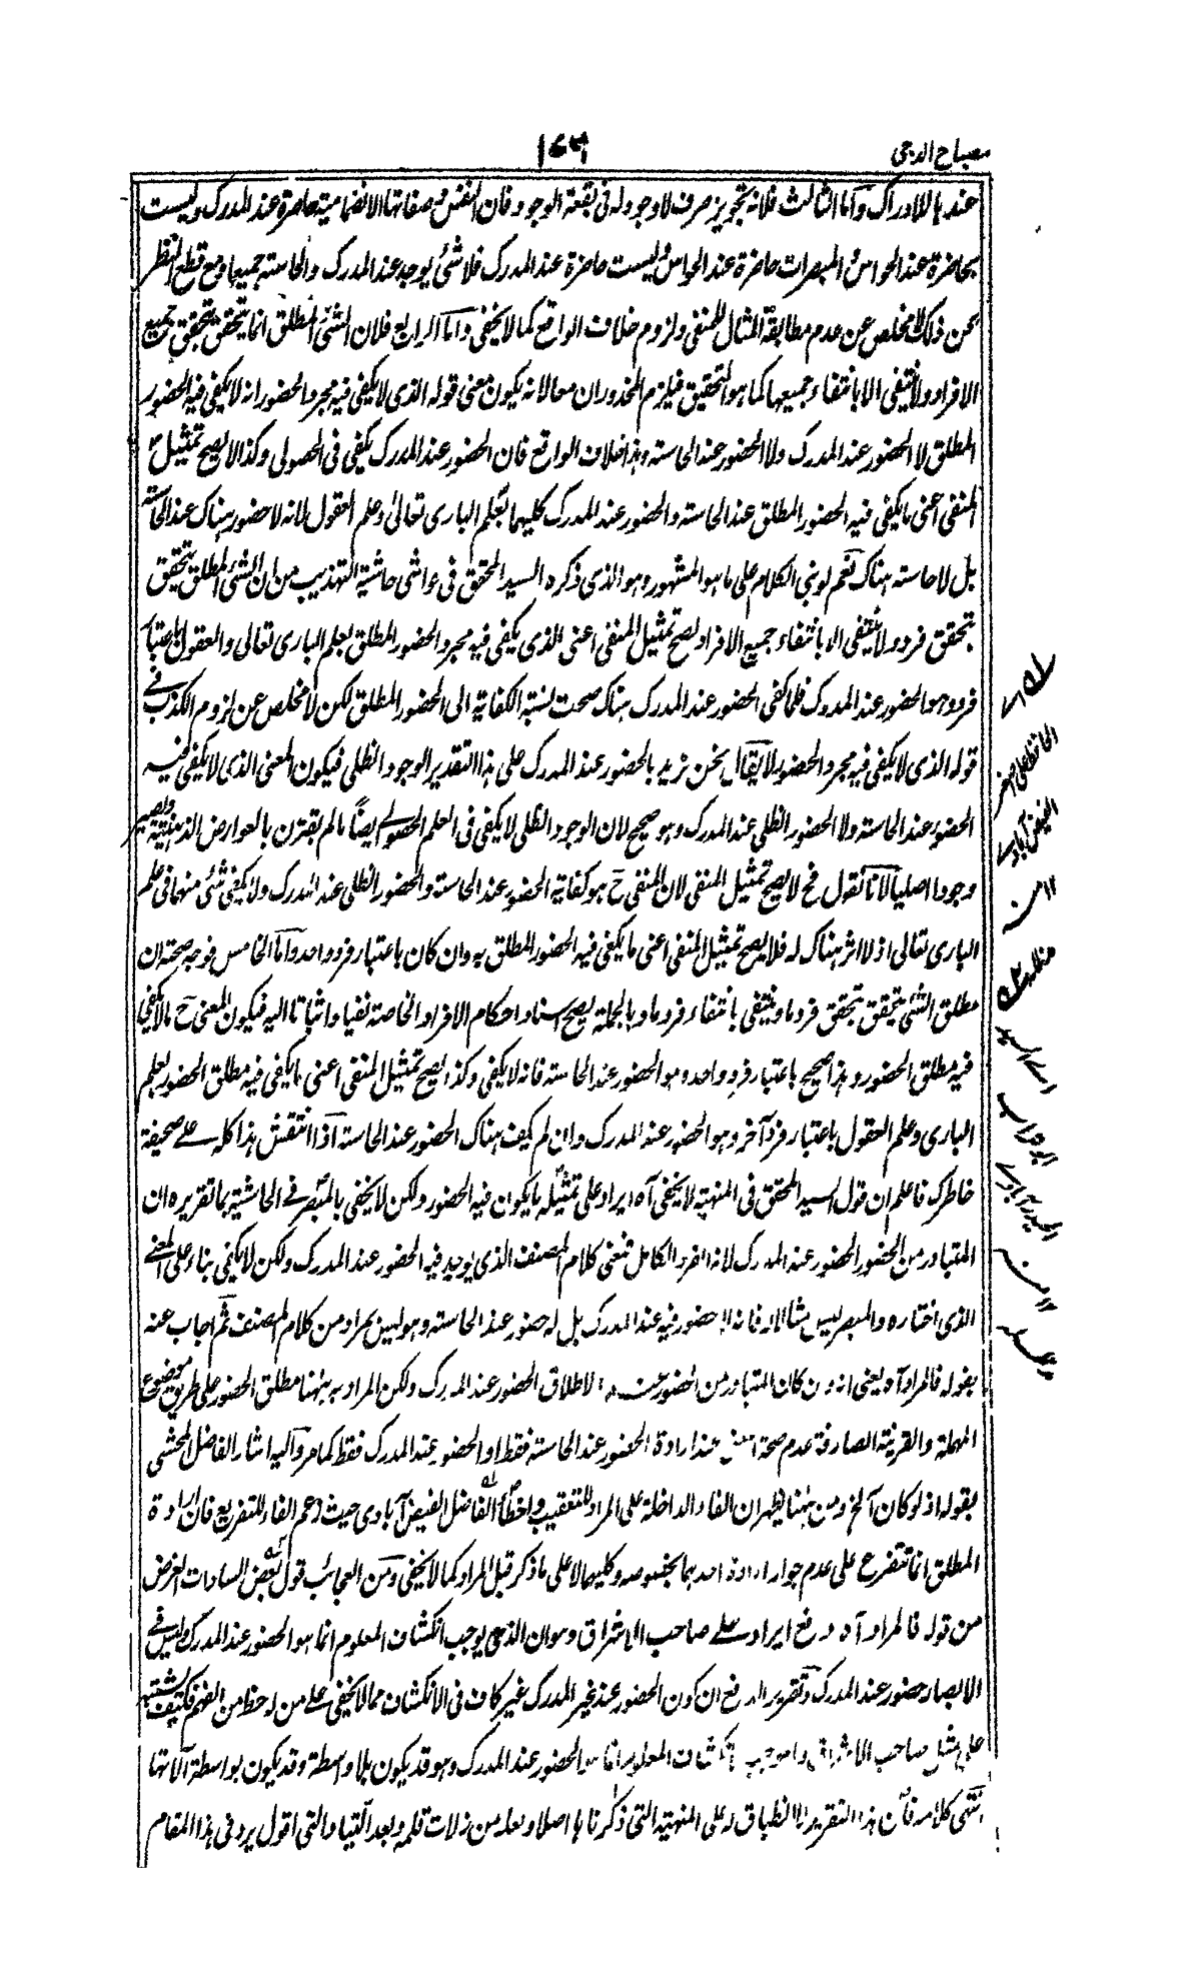 مصباح الدجى
١٧٣
عندها للادراك واما الثالث فلانه تجويز صرف لا وجود له فى بقعة الوجود فان النفس وصفاتها الانضمامية حاضرة عند المدرك وليست
بحاضرة عند الحواس والمبصرات حاضرة عند الحواس وليست حاضرة عند المدرك فلا شئ يوجد عند المدرك والحاسة جميعا ومع قطع النظر
عن ذلك لا مخلص عن عدم مطابقة المثال للمنفى ولزوم خلاف الواقع كما لا يخفى واما الرابع فلان الشئ المطلق انما يتحقق بتحقق جميع
الافراد ولا ينتفى الا بانتفاء جميعها كما هو التحقيق فيلزم المحذوران معا لانه يكون معنى قوله الذى لا يكفى فيه مجرد الحضور انه لا يكفى فيه الحضور
المطلق لا الحضور عند المدرك ولا الحضور عند الحاسة وهذا خلاف الواقع فان الحضور عند المدرك يكفى فى الحصولى وكذا لا يصح تمثيل
المنفى اعنى ما يكفى فيه الحضور المطلق عند الحاسة والحضور عند المدرك كليهما بعلم البارى تعالى وعلم العقول لانه لا حضور هناك عند الحاسة
بل لا حاسة هناك نعم لو بنى الكلام على ما هو المشهور وهو الذى ذكره السيد المحقق فى حواشى حاشية التهذيب من ان الشئ المطلق يتحقق
بتحقق فرد ولا ينتفى الا بانتفاء جميع الافراد لصح تمثيل المنفى اعنى الذى يكفى فيه مجرد الحضور المطلق بعلم البارى تعالى والعقول باعتبار
فرد وهو الحضور عند المدرك فلما كفى الحضور عند المدرك هناك صحت نسبة الكفاية الى الحضور المطلق لكن لا مخلص عن لزوم الكذب فى
قوله الذى لا يكفى فيه مجرد الحضور لا يقال نحن نريد بالحضور عند المدرك على هذا التقدير الوجود الظلى فيكون المعنى الذى لا يكفى فيه
الحضور عند الحاسة ولا الحضور الظلى عند المدرك وهو صحيح لان الوجود الظلى لا يكفى فى العلم الحصولى ايضا ما لم يقترن بالعوارض الذهنية ويصير
وجودا اصليا لانا نقول فح لا يصح تمثيل المنفى لان المنفى ح هو كفاية الحضور عند الحاسة والحضور الظلى عند المدرك ولا يكفى شئ منهما فى علم
البارى تعالى اذ لا اثر هناك له فلا يصح تمثيل المنفى اعنى ما يكفى فيه الحضور المطلق به وان كان باعتبار فرد واحد واما الخامس فوجه صحته ان
مطلق الشئ يتحقق بتحقق فرد ما وينتفى بانتفاء فرد ما وبالجملة يصح اسناد احكام الافراد الخاصة نفيا واثباتا اليه فيكون المعنى ح ما لا يكفى
فيه مطلق الحضور وهذا صحيح باعتبار فرد واحد وهو الحضور عند الحاسة فانه لا يكفى وكذا يصح تمثيل المنفى اعنى ما يكفى فيه مطلق الحضور بعلم
البارى وعلم العقول باعتبار فرد آخر وهو الحضور عند المدرك وان لم يكف هناك الحضور عند الحاسة اذا انتقش هذا كله على صحيفة
خاطرك فاعلم ان قول السيد المحقق فى المنهية لا يخفى آه ايراد على تمثيله ما يكون فيه الحضور ولكن لا يخفى بالمبصر فى الحاشية بما تقريره ان
المتبادر من الحضور الحضور عند المدرك لانه الفرد الكامل فمعنى كلام المصنف الذى يوجد فيه الحضور عند المدرك ولكن لا يكفى بناء على المعنى
الذى اختاره والمبصر ليس مثالا له فانه لا حضور فيه عند المدرك بل له حضور عند الحاسة وهو ليس بمراد من كلام المصنف ثم اجاب عنه
بقوله فالمراد آه يعنى انه وان كان المتبادر من الحضور عند الاطلاق الحضور عند المدرك ولكن المراد به ههنا مطلق الحضور على طريق موضوع
المهملة والقرينة الصارفة عدم صحة المعنى عند ارادة الحضور عند الحاسة فقط او الحضور عند المدرك فقط كما مر واليه اشار الفاضل المحشى
بقوله اذ لو كان آلخ ومن ههنا يظهر ان الفاء الداخلة على المراد للتعقيب واخطأ الفاضل الفيض آبادى حيث زعم الفاء للتفريع فان ارادة
المطلق انما تتفرع على عدم جواز ارادة احدهما بخصوصه وكليهما لا على ما ذكر قبل المراد كما لا يخفى ومن العجائب قول بعض السادات الغرض
من قوله فالمراد آه دفع ايراد على صاحب الاشراق وهو ان الذى يوجب انكشاف المعلوم انما هو الحضور عند المدرك وليس فى
الابصار حضور عند المدرك وتقرير الدفع ان كون الحضور عند غير المدرك غير كاف فى الانكشاف مما لا يخفى على من له حظ من الفهم فكيف يشتبه
على مثل صاحب الاشراق وانما يوجب انكشاف المعلوم انما هو الحضور عند المدرك وهو قد يكون بلا واسطة وقد يكون بواسطة آلاتها
انتهى كلامه فان هذا التقرير لا انطباق له على المنهية التى ذكرناها اصلا ولعله من زلات قلمه وبعد اللتيا والتى اقول يرد فى هذا المقام
الحافظ على اصغر
الفيض آبادى
١٢ منه
مد ظله
اى السيد
ابو تراب
الحيدر آبادى
١٢ منه